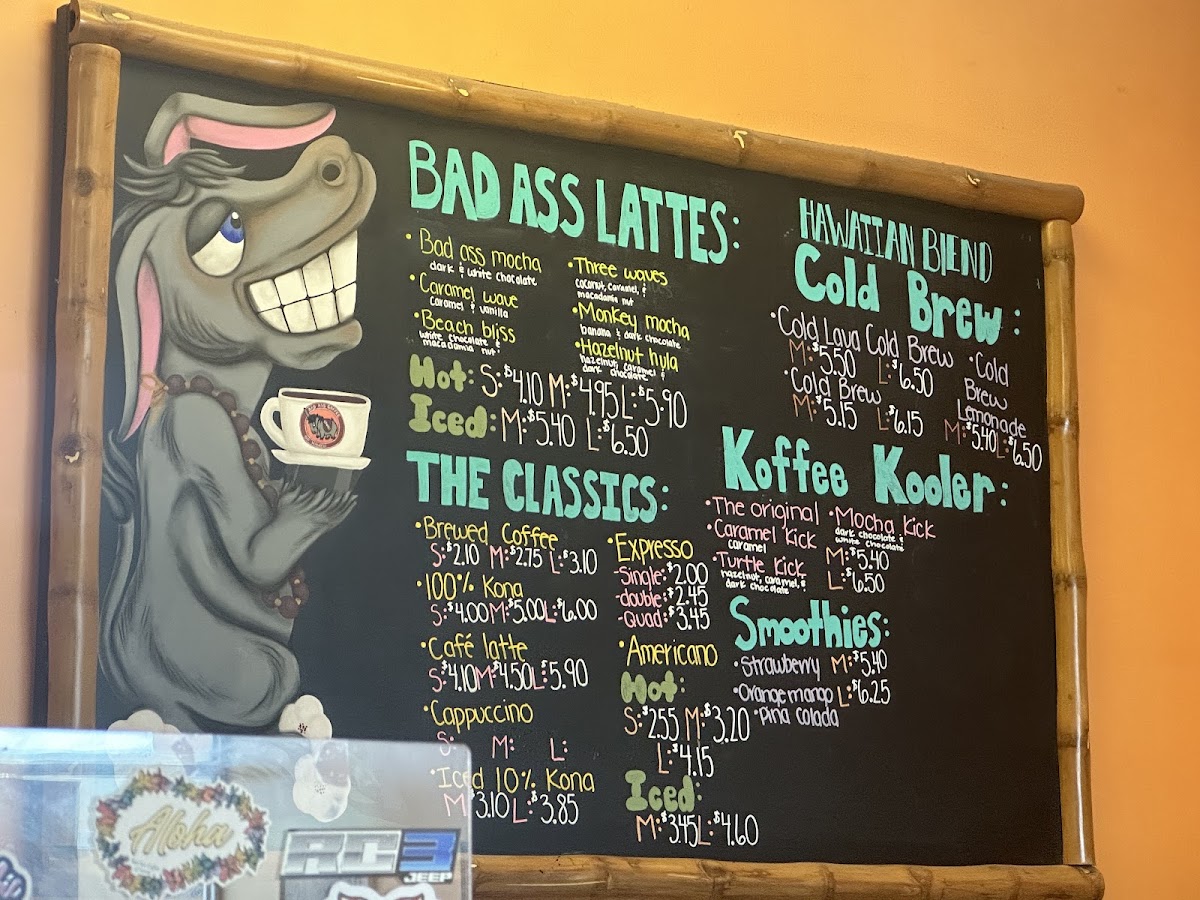 BAD ASS LATTES:
• Bad ass mocha
dark & white chocolate
• Caramel wave
caramel & vanilla
• Beach bliss
white chocolate &
macadamia nut
• Three waves
coconut, caramel, &
macadamia nut
• Monkey mocha
banana & dark chocolate
• Hazelnut hula
hazelnut, caramel &
dark chocolate
Hot: S: $4.10 M: $4.95 L: $5.90
Iced: M: $5.40 L: $6.50
THE CLASSICS:
• Brewed Coffee
S: $2.10 M: $2.75 L: $3.10
• 100% Kona
S: $4.00 M: $5.00 L: $6.00
• Café latte
S: $4.10 M: $4.50 L: $5.90
• Cappuccino
S: M: L:
• Iced 10% Kona
M: $3.10 L: $3.85
• Expresso
-Single: $2.00
-double: $2.45
-Quad: $3.45
• Americano
Hot:
S: $2.55 M: $3.20
L: $4.15
Iced:
M: $3.45 L: $4.60
HAWAIIAN BLEND
Cold Brew:
• Cold Lava Cold Brew
M: $5.50 L: $6.50
• Cold Brew
M: $5.15 L: $6.15
• Cold
Brew
Lemonade
M: $5.40 L: $6.50
Koffee Kooler:
• The original
• Caramel Kick
caramel
• Turtle Kick
hazelnut, caramel, &
dark chocolate
• Mocha Kick
dark chocolate &
white chocolate
M: $5.40
L: $6.50
Smoothies:
• Strawberry M: $5.40
• Orange mango L: $6.25
• Pina colada
Aloha
RC3
JEEP